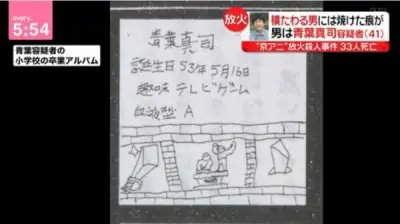 every.
5:54
青葉容疑者の
小学校の卒業アルバム
放火
横たわる男には焼けた痕が
男は青葉真司容疑者(41)
"京アニ"放火殺人事件 33人死亡
青葉真司
誕生日 53年5月16日
趣味 テレビゲーム
血液型 A